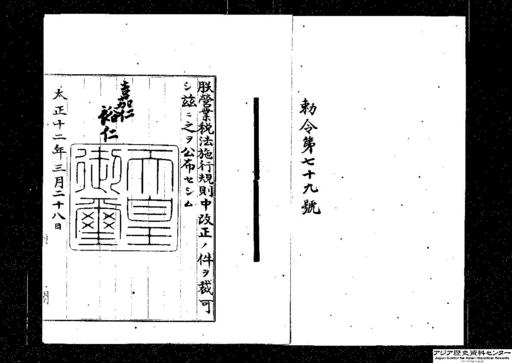 勅令第七十九號
朕營業税法施行規則中改正ノ件ヲ裁可
シ茲ニ之ヲ公布セシム
嘉仁
裕仁
天皇
御璽
大正十二年三月二十八日
アジア歴史資料センター
Japan Center for Asian Historical Records